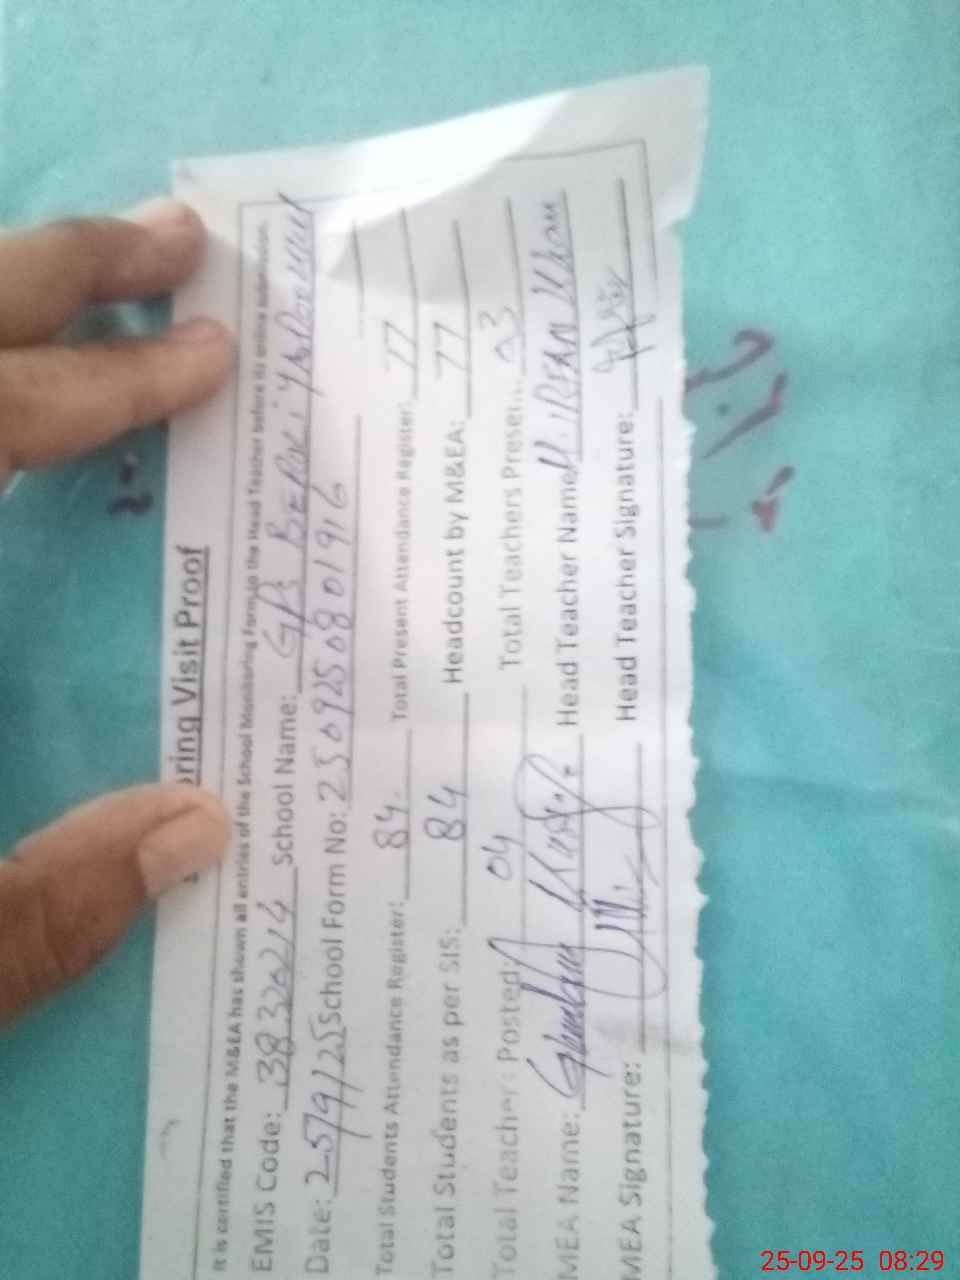 oring Visit Proof
It is certified that the M&EA has shown all entries of the School Monitoring Form to the Head Teacher before its online submission.
EMIS Code: 38320214 School Name: GPS
Date: 25/9/25 School Form No: 250925080 1916
Total Students Attendance Register: 84 Total Present Attendance Register: 77
Total Students as per SIS: 84 Headcount by M&EA: 77
Total Teachers Posted: 04 Total Teachers Present: 03
MEA Name: Ghulam Head Teacher Name: M. IRFAN Khan
MEA Signature: Head Teacher Signature:
25-09-25 08:29